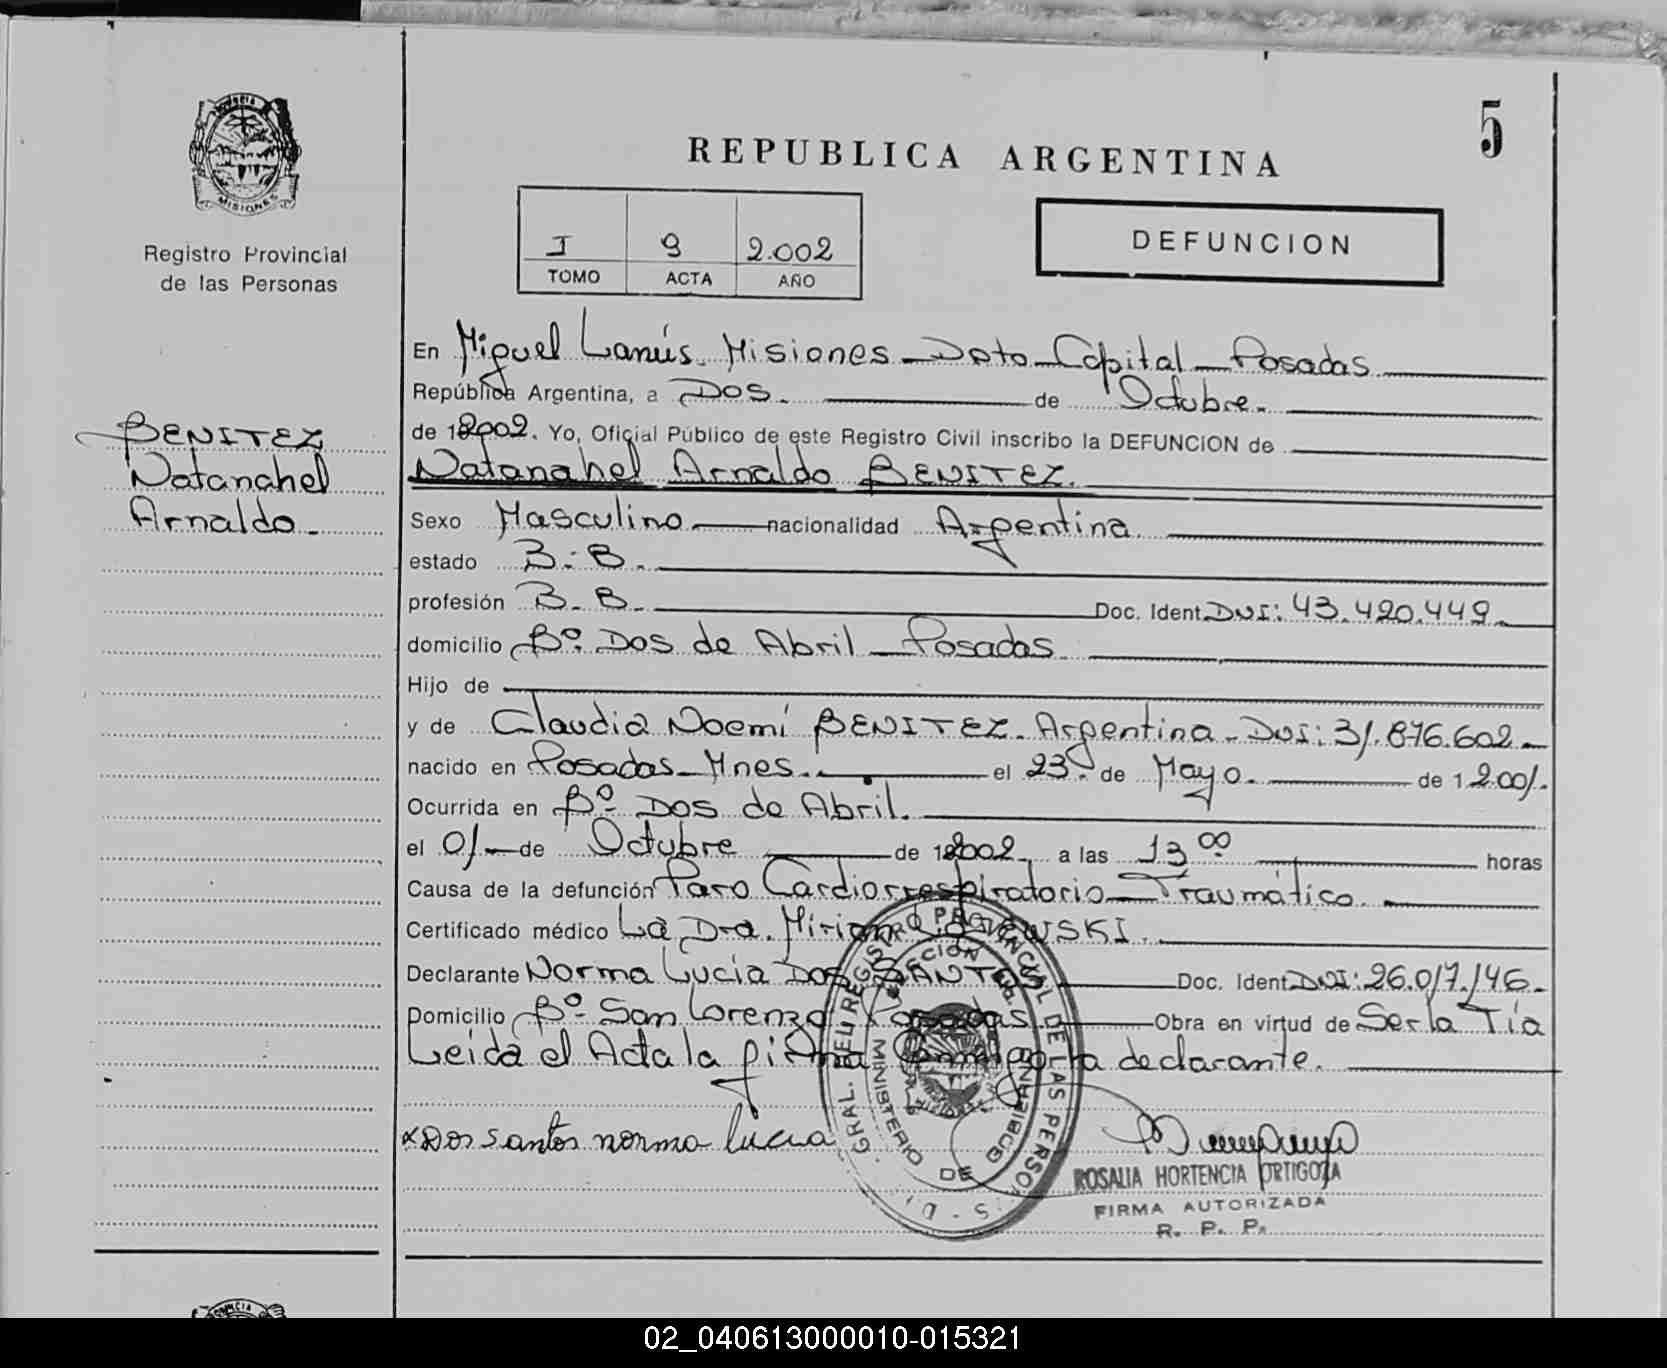 5
REPUBLICA ARGENTINA
PROVINCIA
MISIONES
Registro Provincial
de las Personas
I 9 2.002
TOMO ACTA AÑO
DEFUNCION
En Miguel Lanús. Misiones - Dpto - Capital - Posadas
República Argentina, a Dos. de Octubre.
de 2002. Yo, Oficial Público de este Registro Civil inscribo la DEFUNCION de
BENITEZ
Natanahel
Arnaldo
Natanahel Arnaldo BENITEZ.
Sexo Masculino nacionalidad Argentina
estado B.B.
profesión B.B. Doc. Ident. DNI: 43.420.449
domicilio Bº. Dos de Abril - Posadas
Hijo de
y de Claudia Noemí BENITEZ. Argentina - DNI: 31.876.602
nacido en Posadas - Mnes. el 23 de Mayo de 1.2001.
Ocurrida en Bº. Dos de Abril.
el 01 de Octubre de 2002 a las 13 00 horas
Causa de la defunción Paro Cardiorrespiratorio - Traumático.
Certificado médico La Dra. Miriam
Declarante Norma Lucia DOS SANTOS Doc. Ident. DNI: 26.017.146
Domicilio Bº. San Lorenzo Posadas Obra en virtud de Ser la Tía
Leida el Acta la firma Conmigo la declarante.
x Dos santos norma lucia
GRAL. DEL REGISTRO PROVINCIAL DE LAS PERSO
MINISTERIO DE GOBIERNO
ROSALIA HORTENCIA ORTIGOZA
FIRMA AUTORIZADA
R. P. P.
02_040613000010-015321